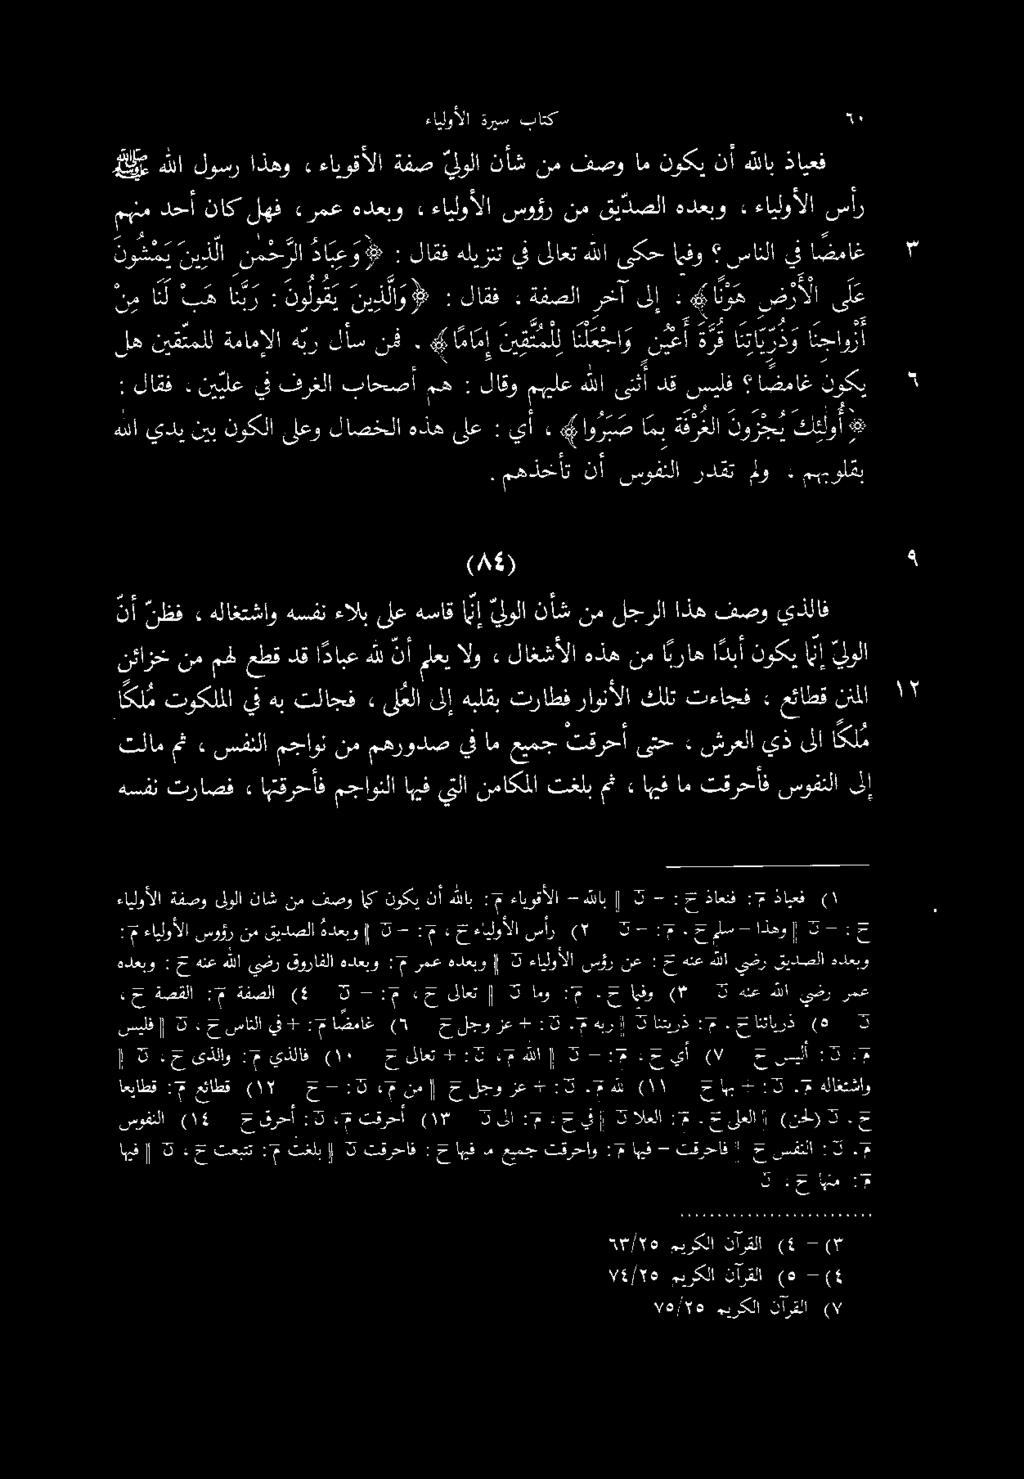 ٦٠ كتاب سيرة الأولياء
فعياذ بالله أن يكون ما وصف من شأن الوليّ صفة الأقوياء ، وهذا رسول الله ﷺ
رأس الأولياء ، وبعده الصدّيق من رؤوس الأولياء ، وبعده عمر ، فهل كان أحد منهم
٣ غامضًا في الناس ؟ وفيما حكى الله تعالى في تنزيله فقال : ﴿وَعِبَادُ الرَّحْمٰنِ الَّذِينَ يَمْشُونَ
عَلَى الْأَرْضِ هَوْنًا﴾ ، إلى آخر الصفة ، فقال : ﴿وَالَّذِينَ يَقُولُونَ : رَبَّنَا هَبْ لَنَا مِنْ
أَزْوَاجِنَا وَذُرِّيَّاتِنَا قُرَّةَ أَعْيُنٍ وَاجْعَلْنَا لِلْمُتَّقِينَ إِمَامًا﴾ . فمن سأل ربّه الإمامة للمتّقين هل
٦ يكون غامضًا ؟ فليس قد أثنى الله عليهم وقال : هم أصحاب الغرف في علّيين ، فقال :
﴿أُولٰئِكَ يُجْزَوْنَ الغُرْفَةَ بِمَا صَبَرُوا﴾ ، أي : على هذه الخصال وعلى الكون بين يدي الله
بقلوبهم ، ولم تقدر النفوس أن تأخذهم .
٩ (٨٤)
فالذي وصف هذا الرجل من شأن الوليّ إنّما ساقه على بلاء نفسه واشتغاله ، فظنّ أنّ
الوليّ إنّما يكون أبدًا هاربًا من هذه الأشغال ، ولا يعلم أنّ لله عبادًا قد قطع لهم من خزائن
١٢ المنن قطائع ، فجاءت تلك الأنوار فطارت بقلبه إلى العُلى ، فجالت به في الملكوت مُلكًا
مُلكًا الى ذي العرش ، حتى أحرقتْ جميع ما في صدورهم من نواجم النفس ، ثم مالت
إلى النفوس فأحرقت ما فيها ، ثم بلغت المكامن التي فيها النواجم فأحرقتها ، فصارت نفسه
١) فعياذ م: فنعاذ ح: – ن ‖ بالله – الأقوياء م: بالله أن يكون كما وصف من شان الولى وصفة الأولياء
ح: – ن ‖ وهذا – سلم ح، م: – ن ٢) رأس الأولياء ح، م: – ن ‖ وبعدهُ الصديق من رؤور الأولياء م:
وبعده الصديق رضي الله عنه ح: عن رؤس الأولياء ن ‖ وبعده عمر م: وبعده الفاروق رضي الله عنه ح: وبعده
عمر رضي الله عنه ن ٣) وفيما ح، م: وما ن ‖ تعالى ح، م: – ن ٤) الصفة م: القصة ح،
ن ٥) ذرياتنا ح، م: ذريتنا ن ‖ ربه م، ن: + عز وجل ح ٦) غامضًا م: + في الناس ح، ن ‖ فليس
م، ن: أليس ح ٧) أي ح، م: – ن ‖ الله م، ن: + تعالى ح ١٠) فالذي م: والذى ح، ن ‖
واشتغاله م، ن: + بها ح ١١) لله م، ن: + عز وجل ح ‖ من م، ن: – ح ١٢) قطائع م: قطايعا
ح، ن (لحن) ‖ العلى ح، م: العلا ن ‖ في ح، م: الى ن ١٣) أحرقت م، ن: أحرق ح ١٤) النفوس
م، ن: النفس ح ‖ فاحرقت – فيها م: واحرقت جميع ما فيها ح: فاحرقت ن ‖ بلغت م: تتبعت ح، ن ‖ فيها
م: منها ح، ن
٣) – ٤) القرآن الكريم ٦٣/٢٥
٤) – ٥) القرآن الكريم ٧٤/٢٥
٧) القرآن الكريم ٧٥/٢٥